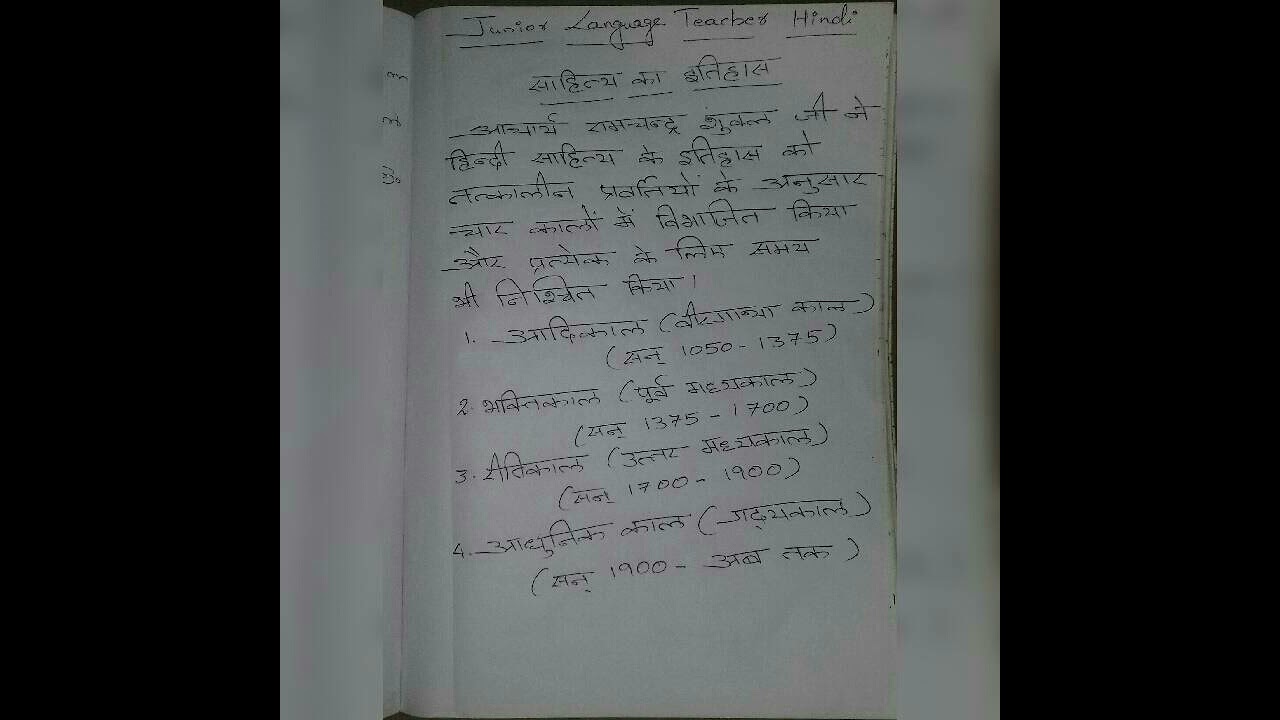 Junior Language Teacher Hindi
साहित्य का इतिहास
आचार्य रामचन्द्र शुक्ल जी ने
हिन्दी साहित्य के इतिहास को
तत्कालीन प्रवर्तियों के अनुसार
चार कालों में विभाजित किया
और प्रत्येक के लिए समय
भी निश्चित किया।
1. आदिकाल (वीरगाथा काल)
(सन् 1050 - 1375)
2. भक्तिकाल (पूर्व मध्यकाल)
(सन् 1375 - 1700)
3. रीतिकाल (उत्तर मध्यकाल)
(सन् 1700 - 1900)
4. आधुनिक काल (गद्यकाल)
(सन् 1900 - अब तक)